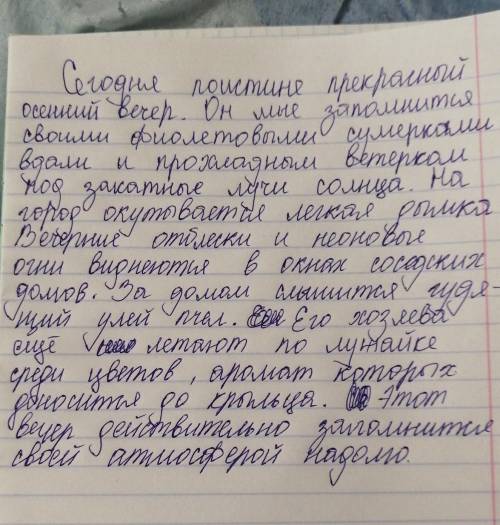 Сегодня поистине прекрасный
осенний вечер. Он мне запомнится
своими фиолетовыми сумерками
вдали и прохладным ветерком
под закатные лучи солнца. На
город окутывается легкая дымка
Вечерние отблески и неоновые
огни виднеются в окнах соседских
домов. За домом слышится гудя-
щий улей пчел. Его хозяева
ещё летают по лужайке
среди цветов, аромат которых
доносится до крыльца. Этот
вечер действительно запомнится
своей атмосферой надолго.